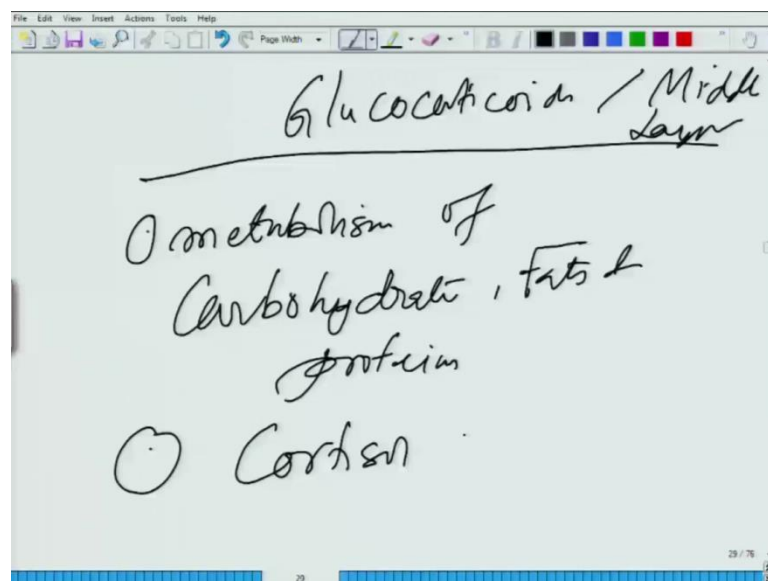 File Edit View Insert Actions Tools Help
Page Width B I
Glucocorticoids / Middle
Layer
metabolism of
Carbohydrate, Fats &
proteins
Cortisol
29 / 76
29